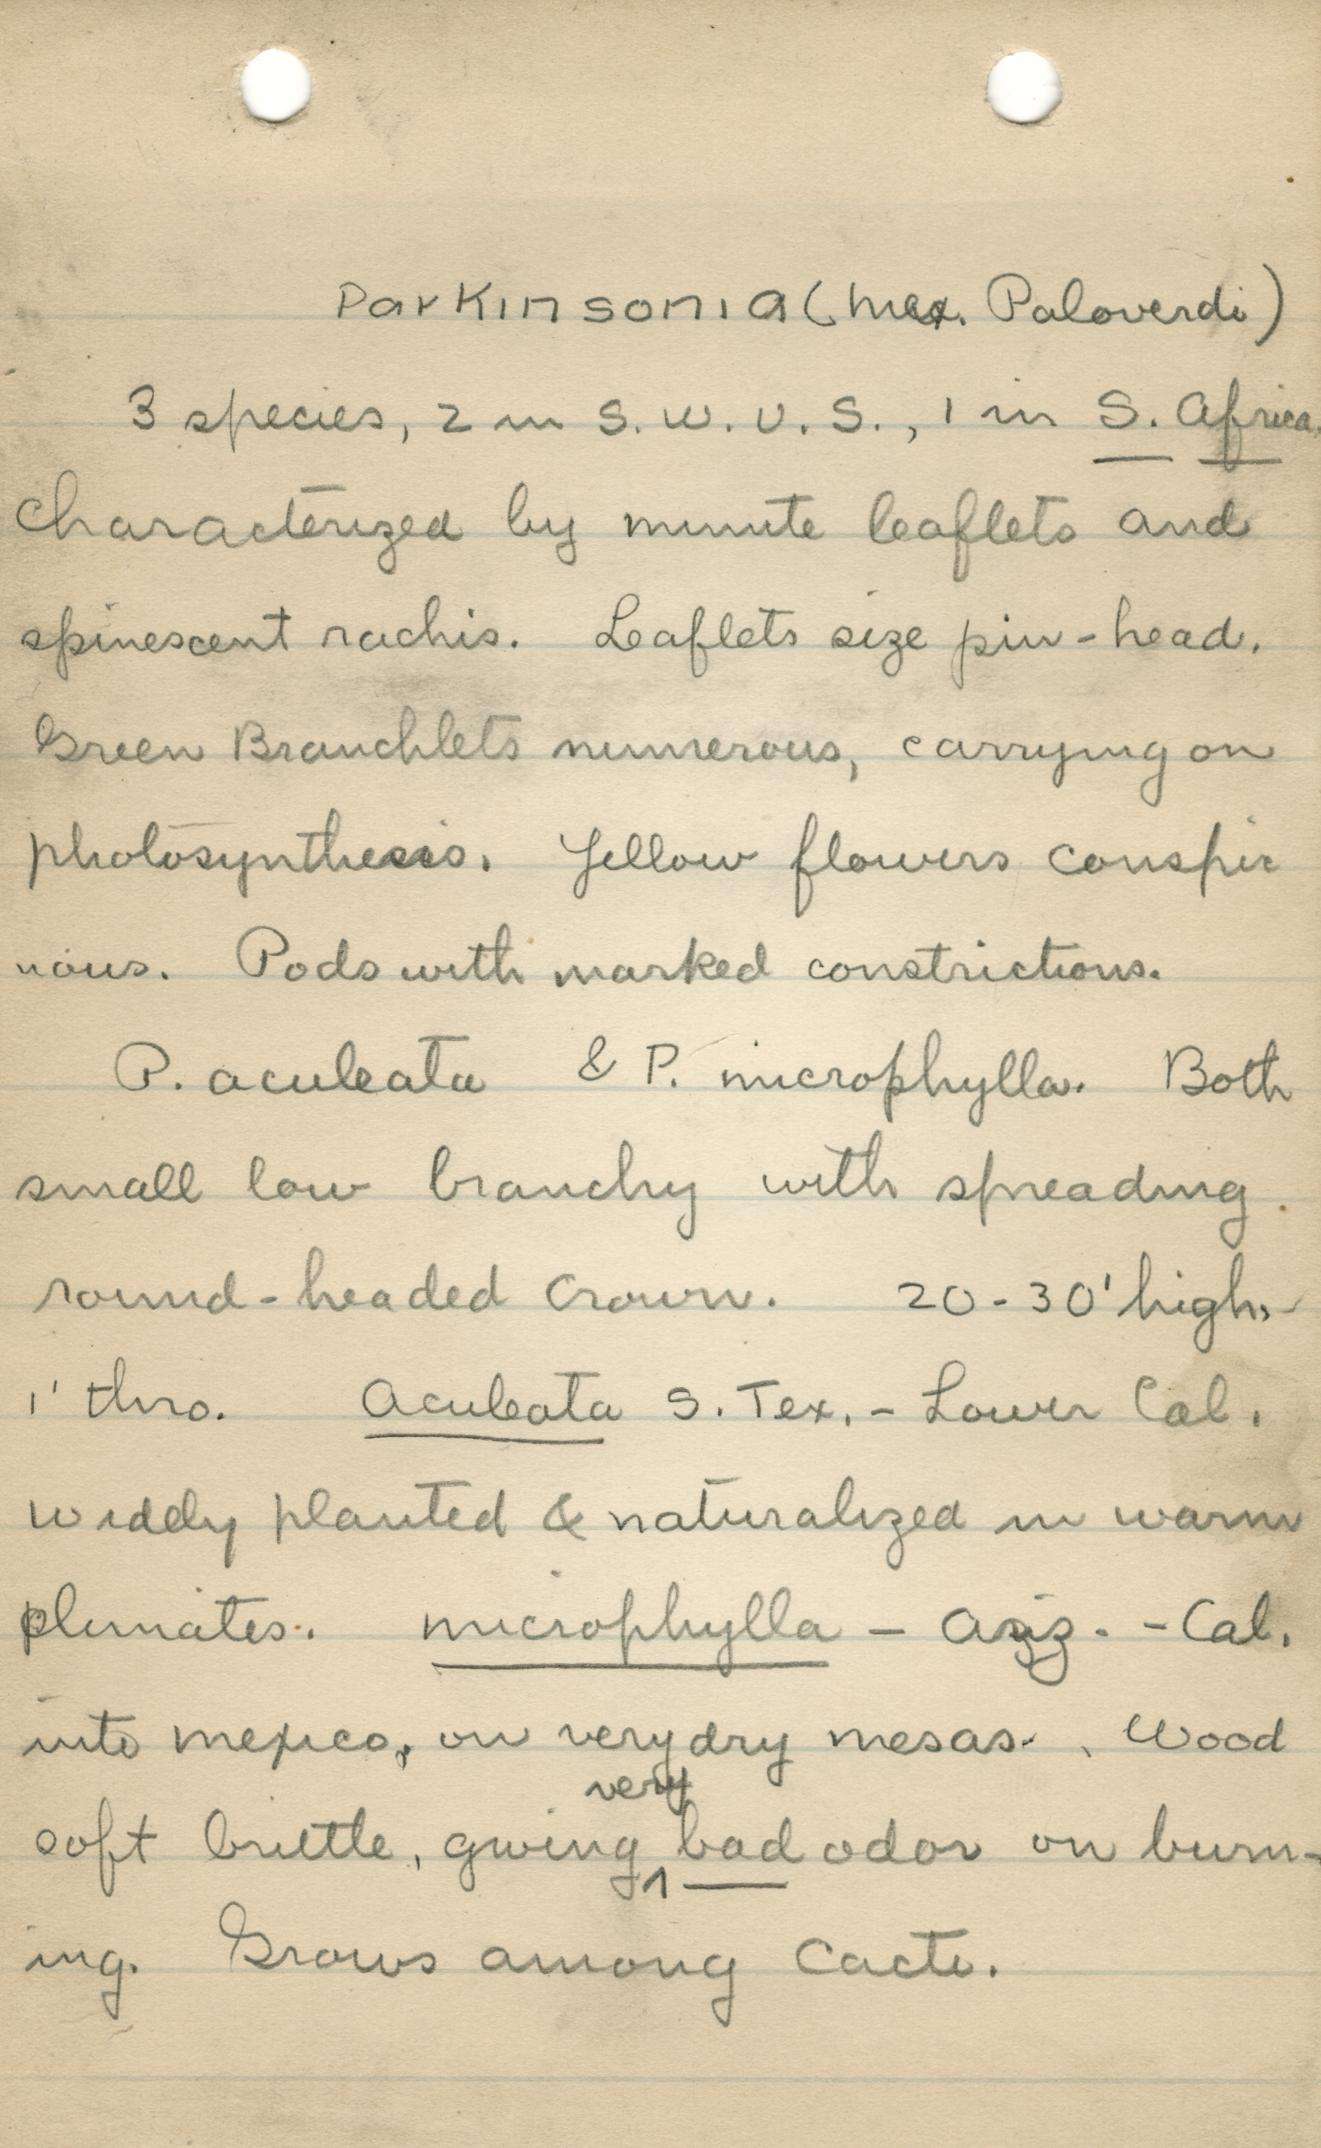 Parkinsonia (Mex. Paloverdi)
3 species, 2 in S. W. U. S., 1 in S. Africa.
Characterized by minute leaflets and
spinescent rachis. Leaflets size pin-head.
Green Branchlets numerous, carrying on
photosynthesis. Yellow flowers conspic
uous. Pods with marked constrictions.
P. aculeata & P. microphylla. Both
small low branchy with spreading
round-headed crown. 20-30' high,
1' thro. Aculeata S. Tex. - Lower Cal.
widely planted & naturalized in warm
climates. microphylla - Ariz. - Cal.
into Mexico, on very dry mesas. Wood
very
soft brittle, giving bad odor on burn-
ing. Grows among Cacti.